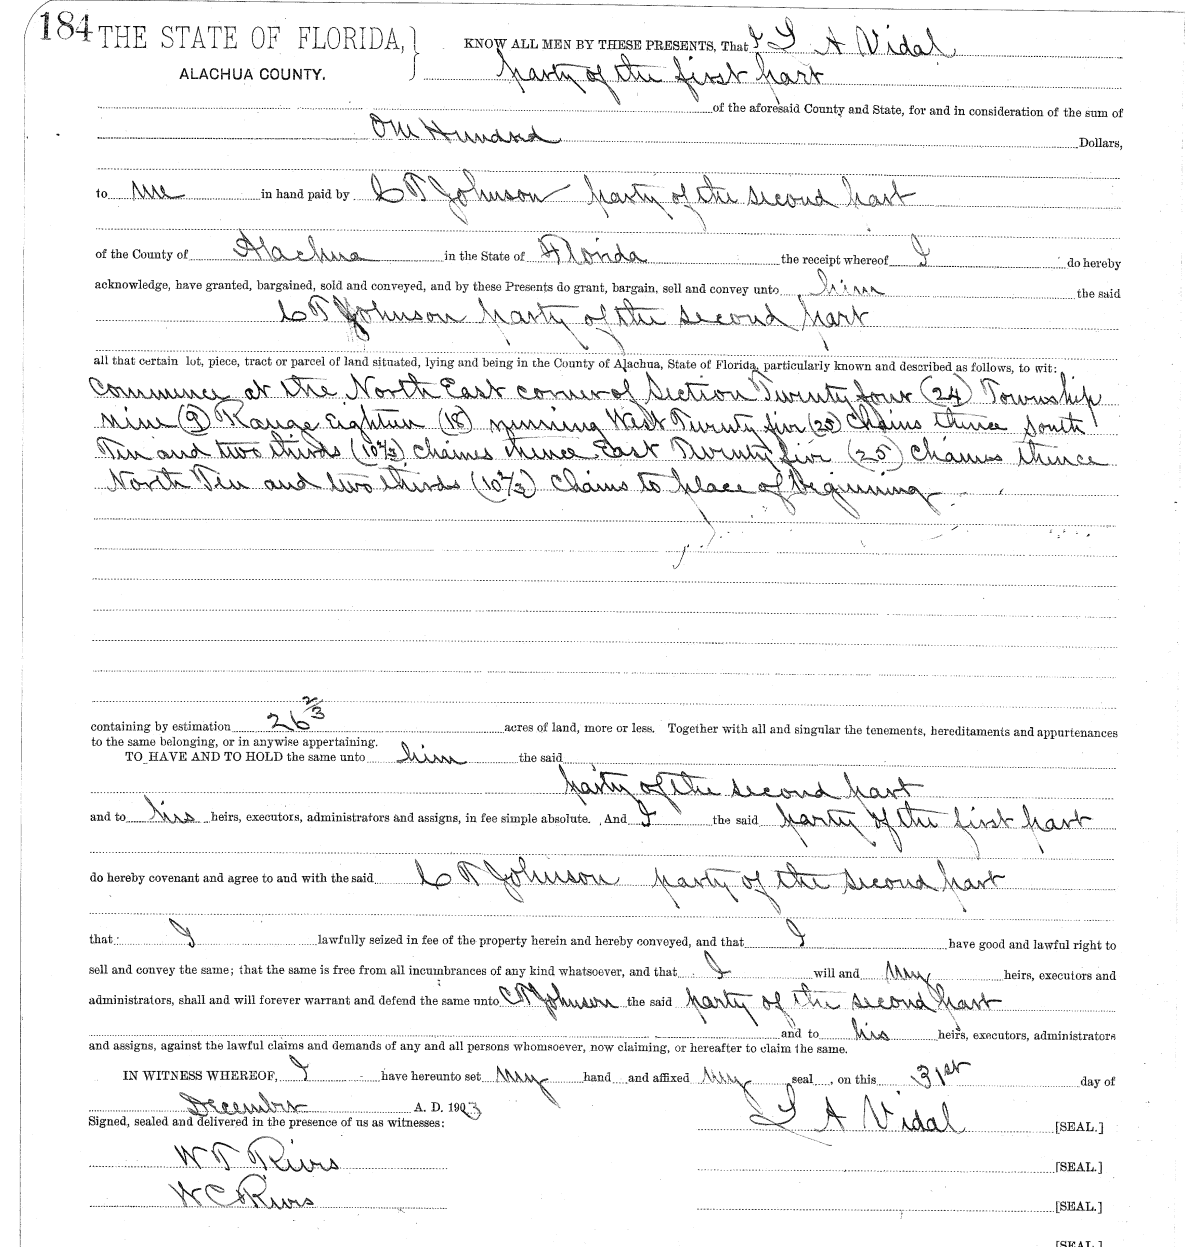 184 THE STATE OF FLORIDA, } KNOW ALL MEN BY THESE PRESENTS, That I S A Vidal
ALACHUA COUNTY. party of the first part
of the aforesaid County and State, for and in consideration of the sum of
One Hundred Dollars,
to me in hand paid by C T Johnson party of the second part
of the County of Alachua in the State of Florida the receipt whereof I do hereby
acknowledge, have granted, bargained, sold and conveyed, and by these Presents do grant, bargain, sell and convey unto him the said
C T Johnson party of the second part
all that certain lot, piece, tract or parcel of land situated, lying and being in the County of Alachua, State of Florida, particularly known and described as follows, to wit:
Commence at the North East corner of Section Twenty four (24) Township
nine (9) Range Eighteen (18) running West Twenty five (25) Chains thence South
Ten and two thirds (10 2/3) Chaines thence East Twenty five (25) Chaines thence
North Ten and two thirds (10 2/3) Chains to place of beginning
containing by estimation 26 2/3 acres of land, more or less. Together with all and singular the tenements, hereditaments and appurtenances
to the same belonging, or in anywise appertaining.
TO HAVE AND TO HOLD the same unto him the said
party of the second part
and to his heirs, executors, administrators and assigns, in fee simple absolute. And I the said party of the first part
do hereby covenant and agree to and with the said C T Johnson party of the second part
that I lawfully seized in fee of the property herein and hereby conveyed, and that I have good and lawful right to
sell and convey the same; that the same is free from all incumbrances of any kind whatsoever, and that I will and my heirs, executors and
administrators, shall and will forever warrant and defend the same unto C T Johnson the said party of the second part
and to his heirs, executors, administrators
and assigns, against the lawful claims and demands of any and all persons whomsoever, now claiming, or hereafter to claim the same.
IN WITNESS WHEREOF, I have hereunto set my hand and affixed my seal, on this 31st day of
December A. D. 1903
Signed, sealed and delivered in the presence of us as witnesses: S A Vidal [SEAL.]
W T Rivers [SEAL.]
W C Rivers [SEAL.]
[SEAL.]